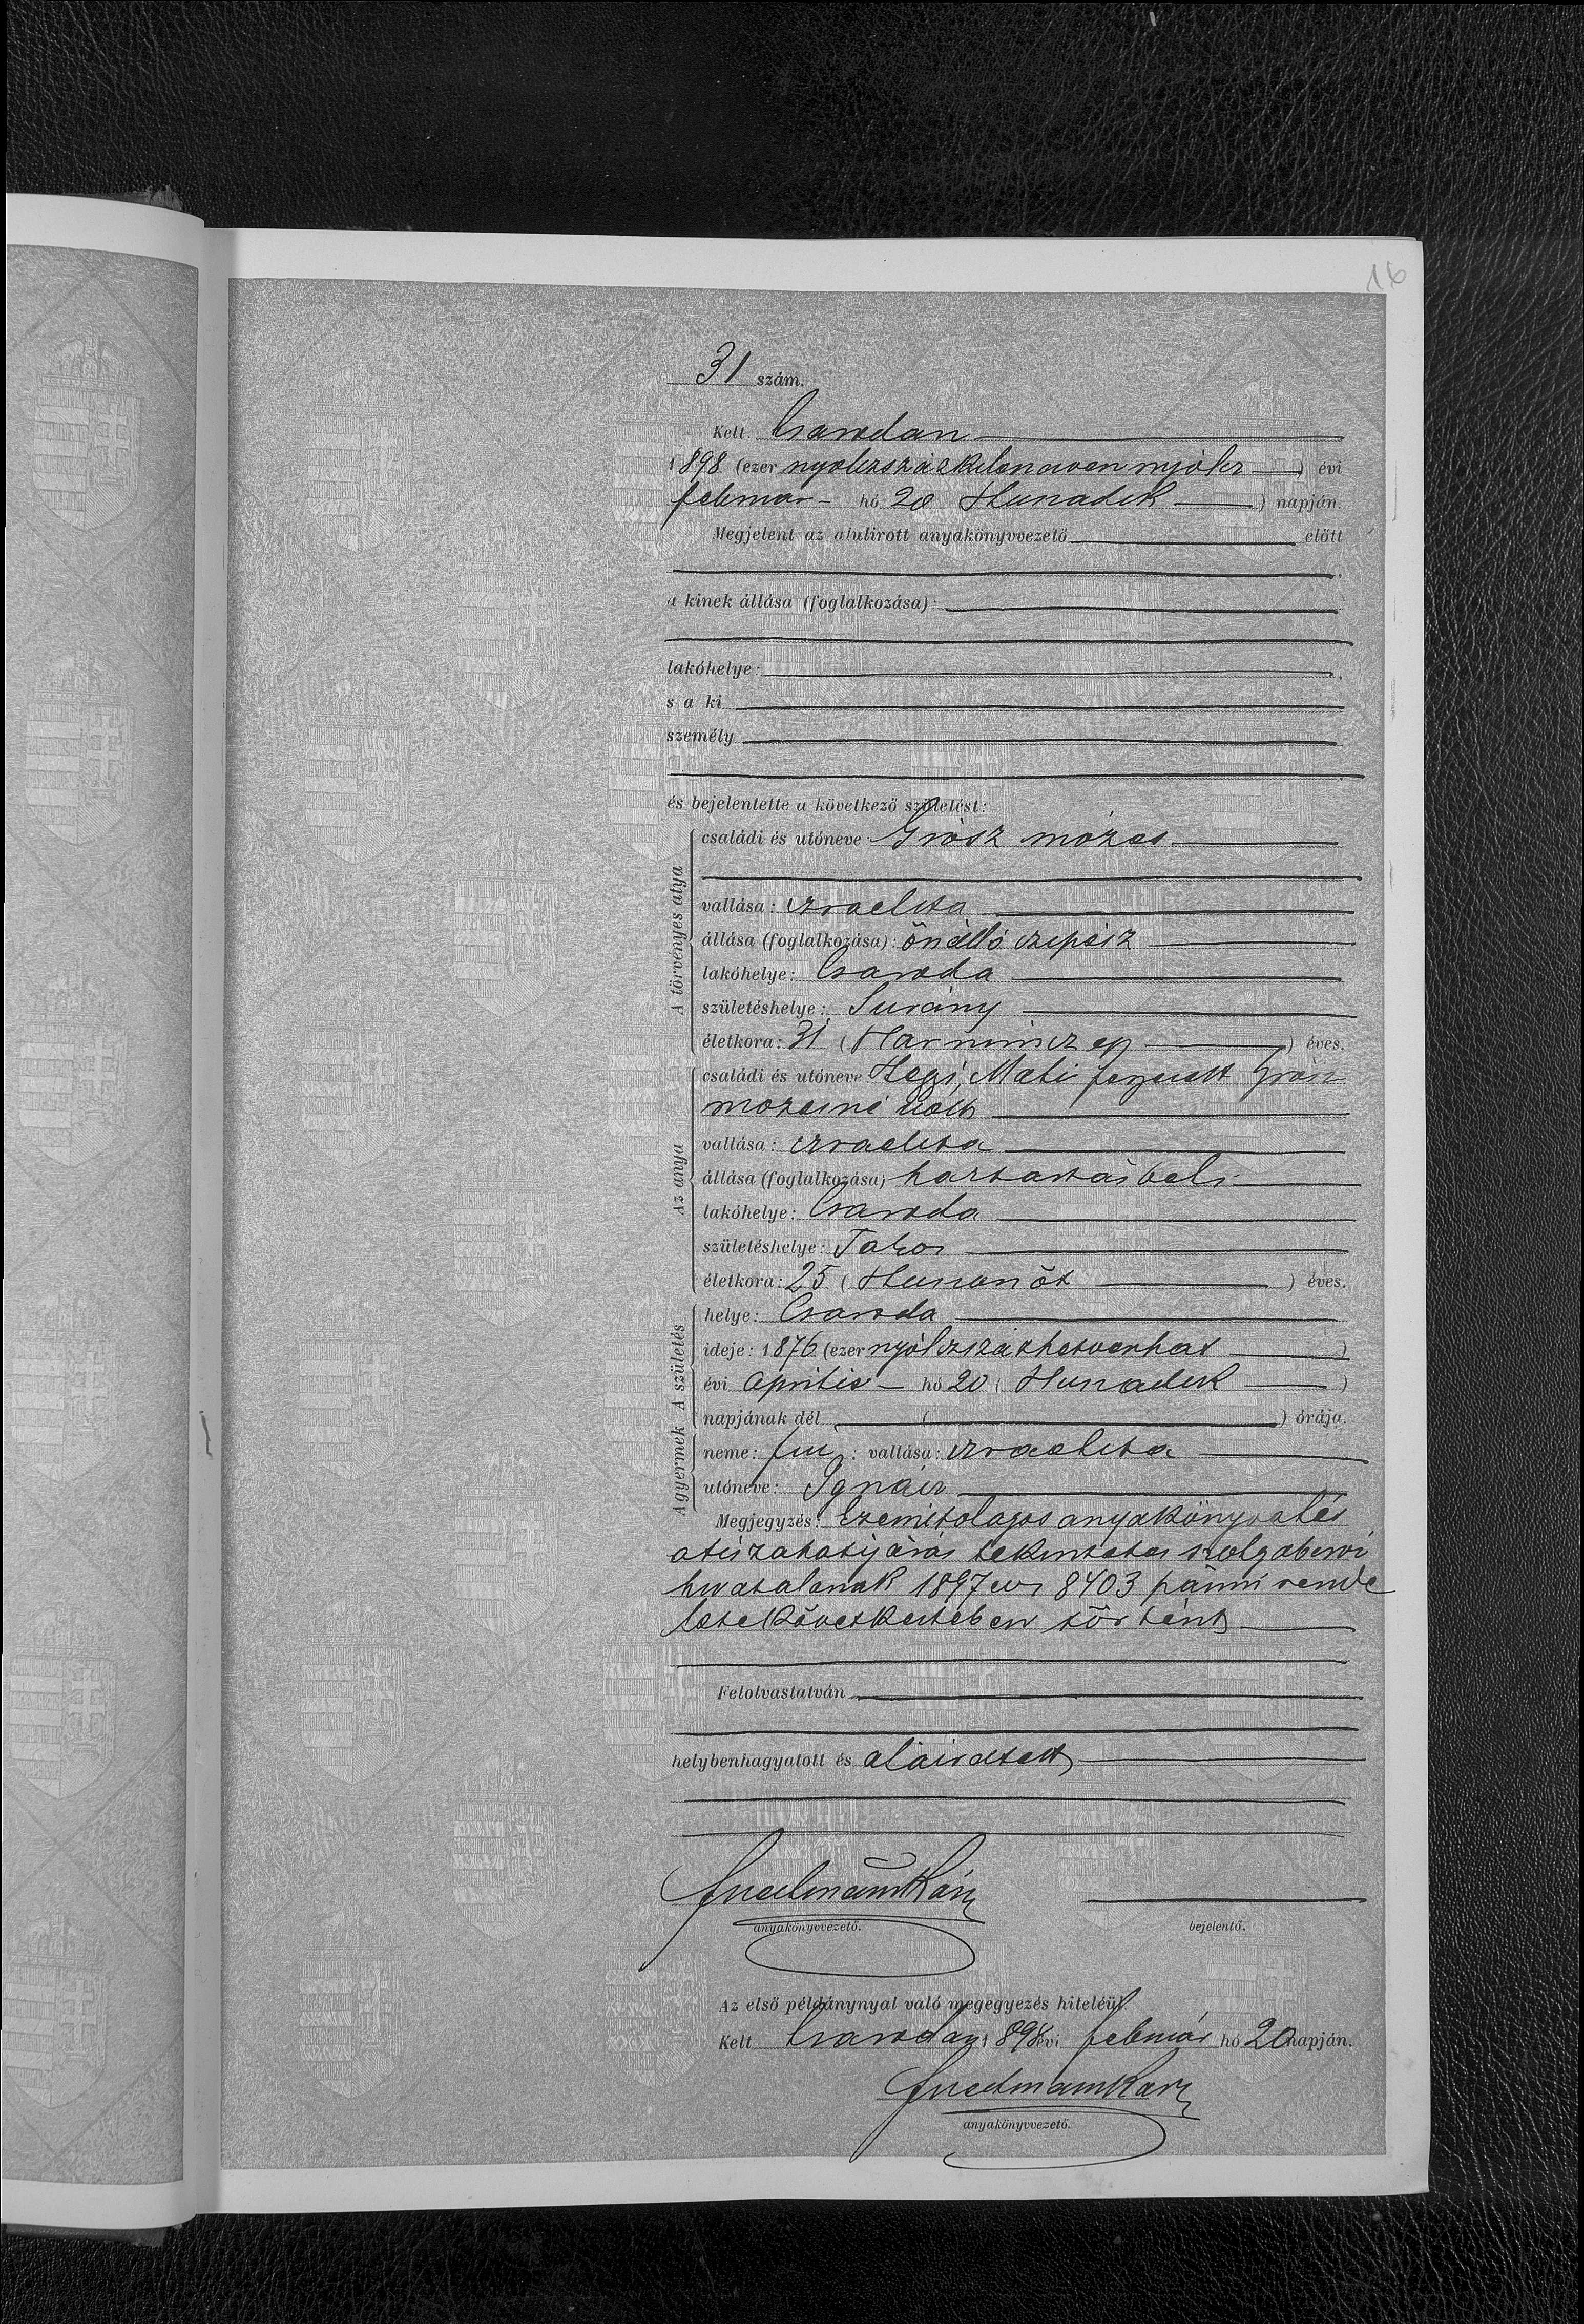 16
31 szám.
Kelt. Csarodan
1898 (ezer nyolczszázkilenczven nyólcz) évi
február hó 20 Huszadik) napján.
Megjelent az alulirott anyakönyvvezető előtt
a kinek állása (foglalkozása):
lakóhelye:
s a ki
személy
és bejelentette a következő születést:
A törvényes atya
családi és utóneve Grósz mózes
vallása: izraelita
állása (foglalkozása): önálló czipész
lakóhelye: Csaroda
születéshelye: Surány
életkora: 31 (Harmincz egy) éves.
Az anya
családi és utóneve Hegyi, Mati férjezett Grósz
mozesné
vallása: izraelita
állása (foglalkozása) háztartásbeli
lakóhelye: Csaroda
születéshelye: Takos
életkora: 25 (Huszonöt) éves.
A születés
helye: Csaroda
ideje: 1876 (ezer nyólczszázhetvenhat)
évi április hó 20 (Huszadik)
napjának dél ( ) órája.
A gyermek
neme: fiú: vallása: izraelita
utóneve: Ignácz
Megjegyzés: Ezen utolagos anyakönyvelés
a tiszaháti járás tekintetes szolgabirói
hivatalának 1897 évi 8403 számú rende
lete következtében történt
Felolvastatván
helybenhagyatott és aláiratott
anyakönyvvezető.
bejelentő.
Az első példánynyal való megegyezés hiteléül.
Kelt Csarodan 1898 évi február hó 20 napján.
anyakönyvvezető.